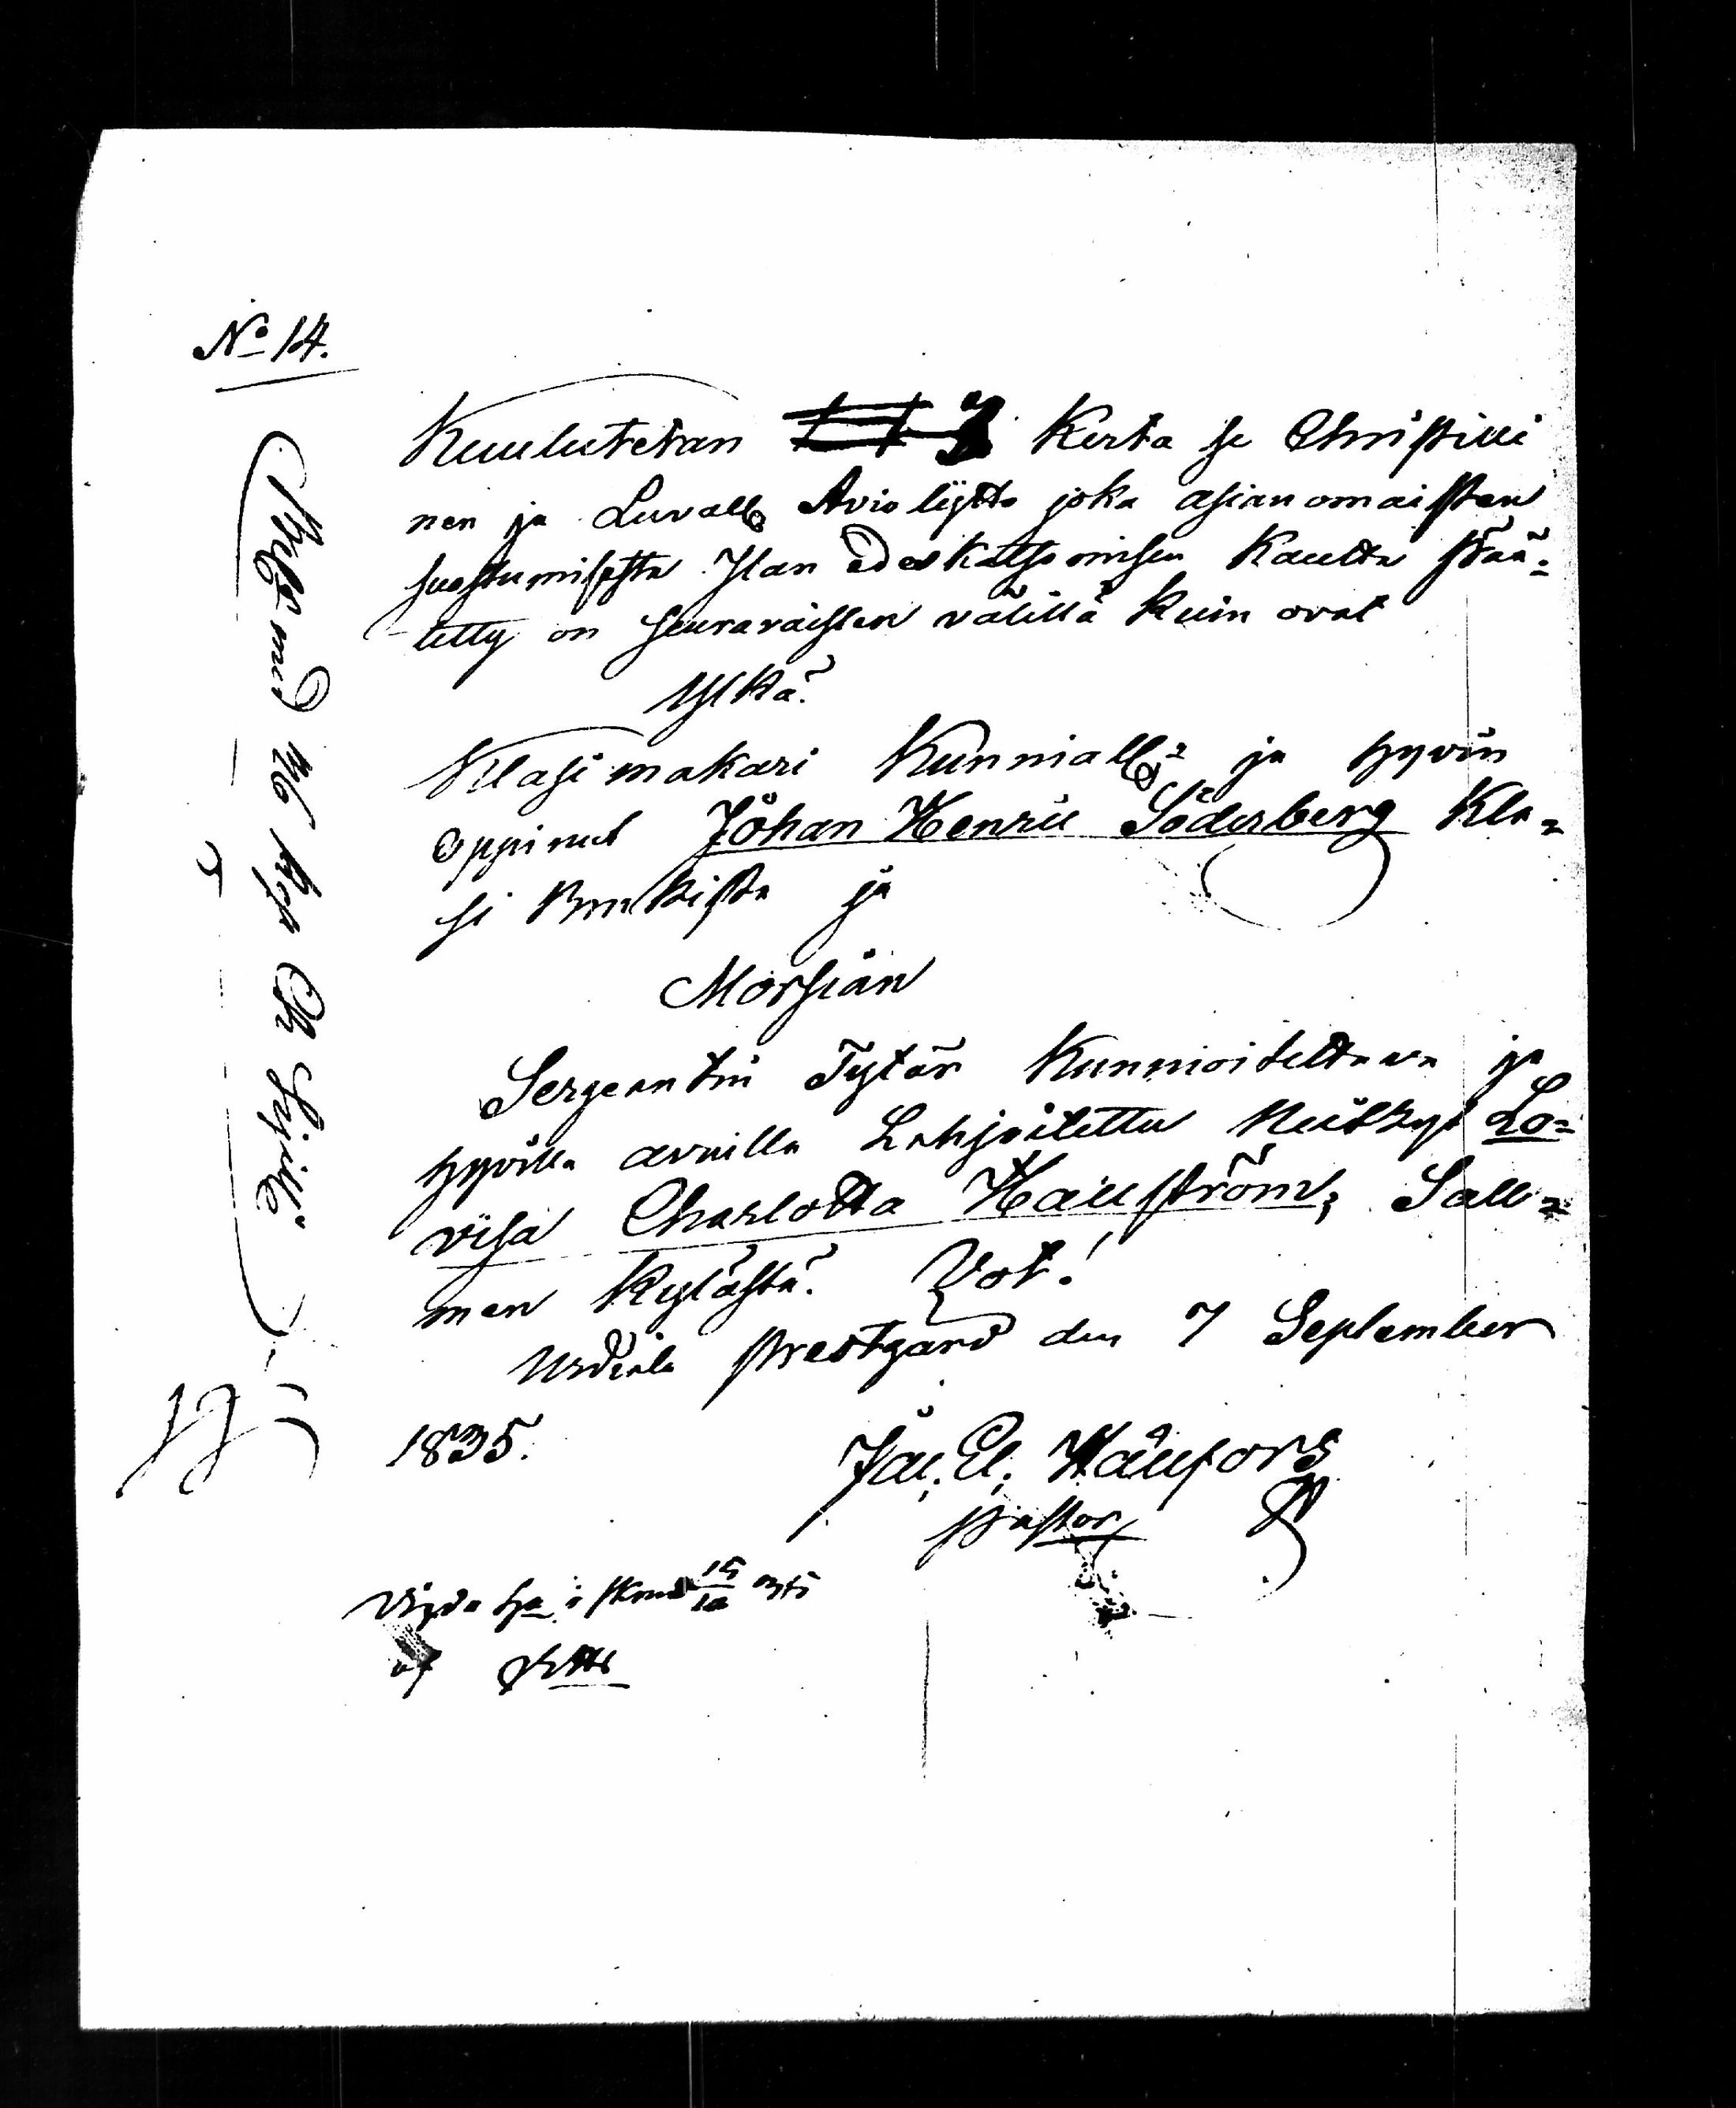 No 14.
Kuulutetan 3 Kerta se Christilli
nen ja Luvall. Avioliytto joka asianomaisten
suostumisesta Isan edeskatsomisen Kautta pää-
tetty on seuravaisten välillä Kuin ovat
Ylkä.
Klasimakari Kunniall. ja hyvin
oppinut Johan Henric Söderberg Kla-
si Brukista ja
Morsian
Sergeantin Tytär Kunnioitettava ja
hyvillä avuilla Lahjoitettu Neitsyt Lo-
visa Charlotta Hällström, Sall-
men Kylästä. Vot!
Urdiala Prestgård den 7 September
1835.
Jac. El. Hällfors
Pastor
Vigda
af